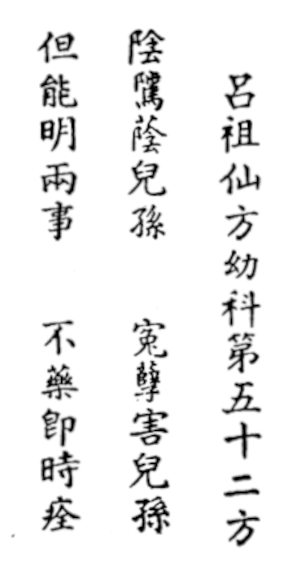 呂祖仙方幼科第五十二方
陰騭蔭兒孫 冤孽害兒孫
但能明兩事 不藥卽時痊